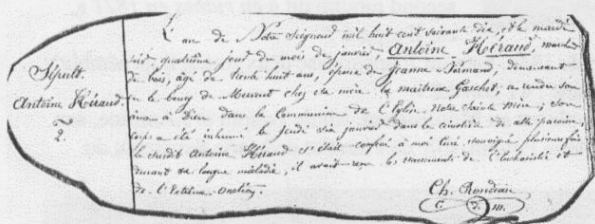 Sépult.
Antoine Héraud.
2.
L'an de Notre Seigneur mil huit cent soixante dix, et le mardi
soir, quatrième jour du mois de janvier, Antoine Héraud, marchand
de bois, âgé de trente huit ans, époux de Jeanne Bémand, demeurant
en le bourg de chez sa mère la maitresse Gaschet, a rendu son
âme à Dieu dans la Communion de l'Eglise Notre Sainte Mère ; son
corps a été inhumé le jeudi six janvier dans le cimetière de cette paroisse.
Le susdit Antoine Héraud s'était confessé à moi curé, soussigné plusieurs fois
durant sa longue maladie, il avait reçu les sacrements de l'Eucharistie et
de l'Extrême-onction.
Ch. Rondeau
c. d. m.